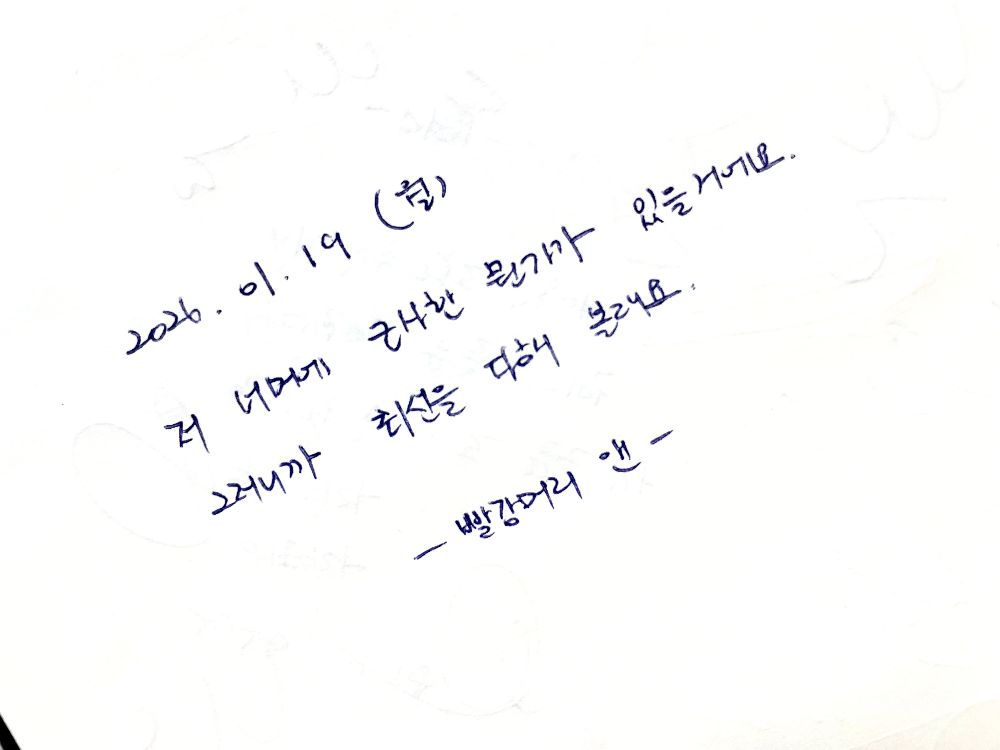 2026. 01. 19 (월)
저 너머에 근사한 뭔가가 있을거에요.
그러니까 최선을 다해 볼래요.
- 빨강머리 앤 -